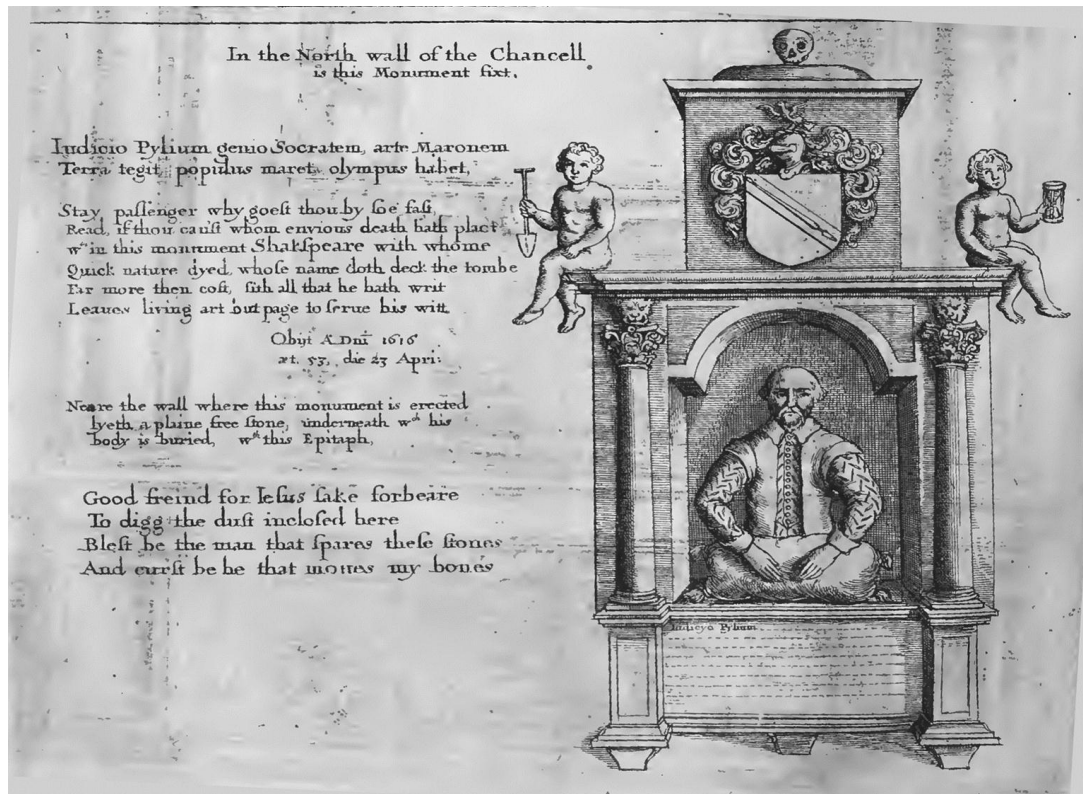 In the North wall of the Chancell
is this Monument fixt.
Iudicio Pylium genio Socratem, arte Maronem
Terra tegit, populus mæret, olympus habet,
Stay paſſenger why goeſt thou by ſoe faſt,
Read, if thou canſt whom envious death hath plact
wth in this monument Shakſpeare with whome
Quick nature dyed, whoſe name doth deck the tombe
Far more then coſt, ſith all that he hath writ
Leaues living art but page to ſerue his witt
Obijt A. Dni 1616
æt. 53, die 23 Apri:
Neare the wall where this monument is erected
lyeth a plaine free ſtone, underneath wch his
body is buried, wth this Epitaph,
Good freind for Ieſus ſake forbeare
To digg the duſt incloſed here
Bleſt be the man that ſpares theſe ſtones
And curſt be he that moues my bones
Iudicyo Pylium